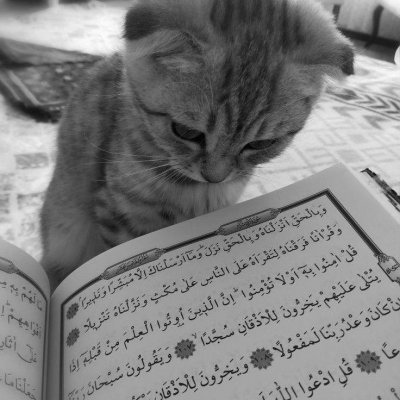 وَبِالْحَقِّ اَنْزَلْنَاهُ وَبِالْحَقِّ نَزَلَ وَمَٓا اَرْسَلْنَاكَ اِلَّا مُبَشِّرًا وَنَذ۪يرًا
وَقُرْاٰنًا فَرَقْنَاهُ لِتَقْرَاَهُ عَلَى النَّاسِ عَلٰى مُكْثٍ وَنَزَّلْنَاهُ تَنْز۪يلًا
قُلْ اٰمِنُوا بِه۪ٓ اَوْ لَا تُؤْمِنُوا اِنَّ الَّذ۪ينَ اُو۫تُوا الْعِلْمَ مِنْ قَبْلِه۪ٓ اِذَا
يُتْلٰى عَلَيْهِمْ يَخِرُّونَ لِلْاَذْقَانِ سُجَّدًا وَيَقُولُونَ سُبْحَانَ
اِنْ كَانَ وَعْدُ رَبِّنَا لَمَفْعُولًا وَيَخِرُّونَ لِلْاَذْقَانِ
قُلِ ادْعُوا اللّٰهَ